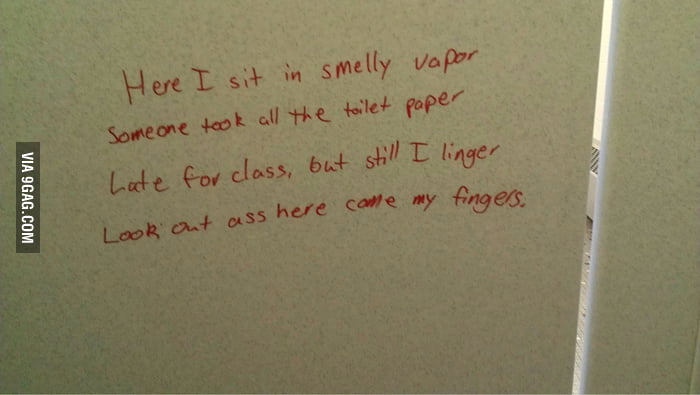 Here I sit in smelly vapor
Someone took all the toilet paper
Late for class, but still I linger
Look out ass here come my fingers.
VIA 9GAG.COM